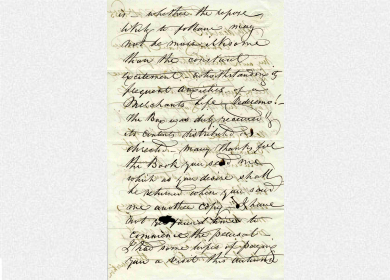 is whether the repose
likely to follow may
not be more irksome
than the constant
excitement notwithstanding
frequent anxieties of a
Merchants life
the Box was duly received &
its contents distributed as
directed — Many thanks for
the Book you send me
which as you desire shall
be returned when you send
me another copy I have
not yet found time to
commence the perusal —
I had some hopes of paying
you a visit this autumn